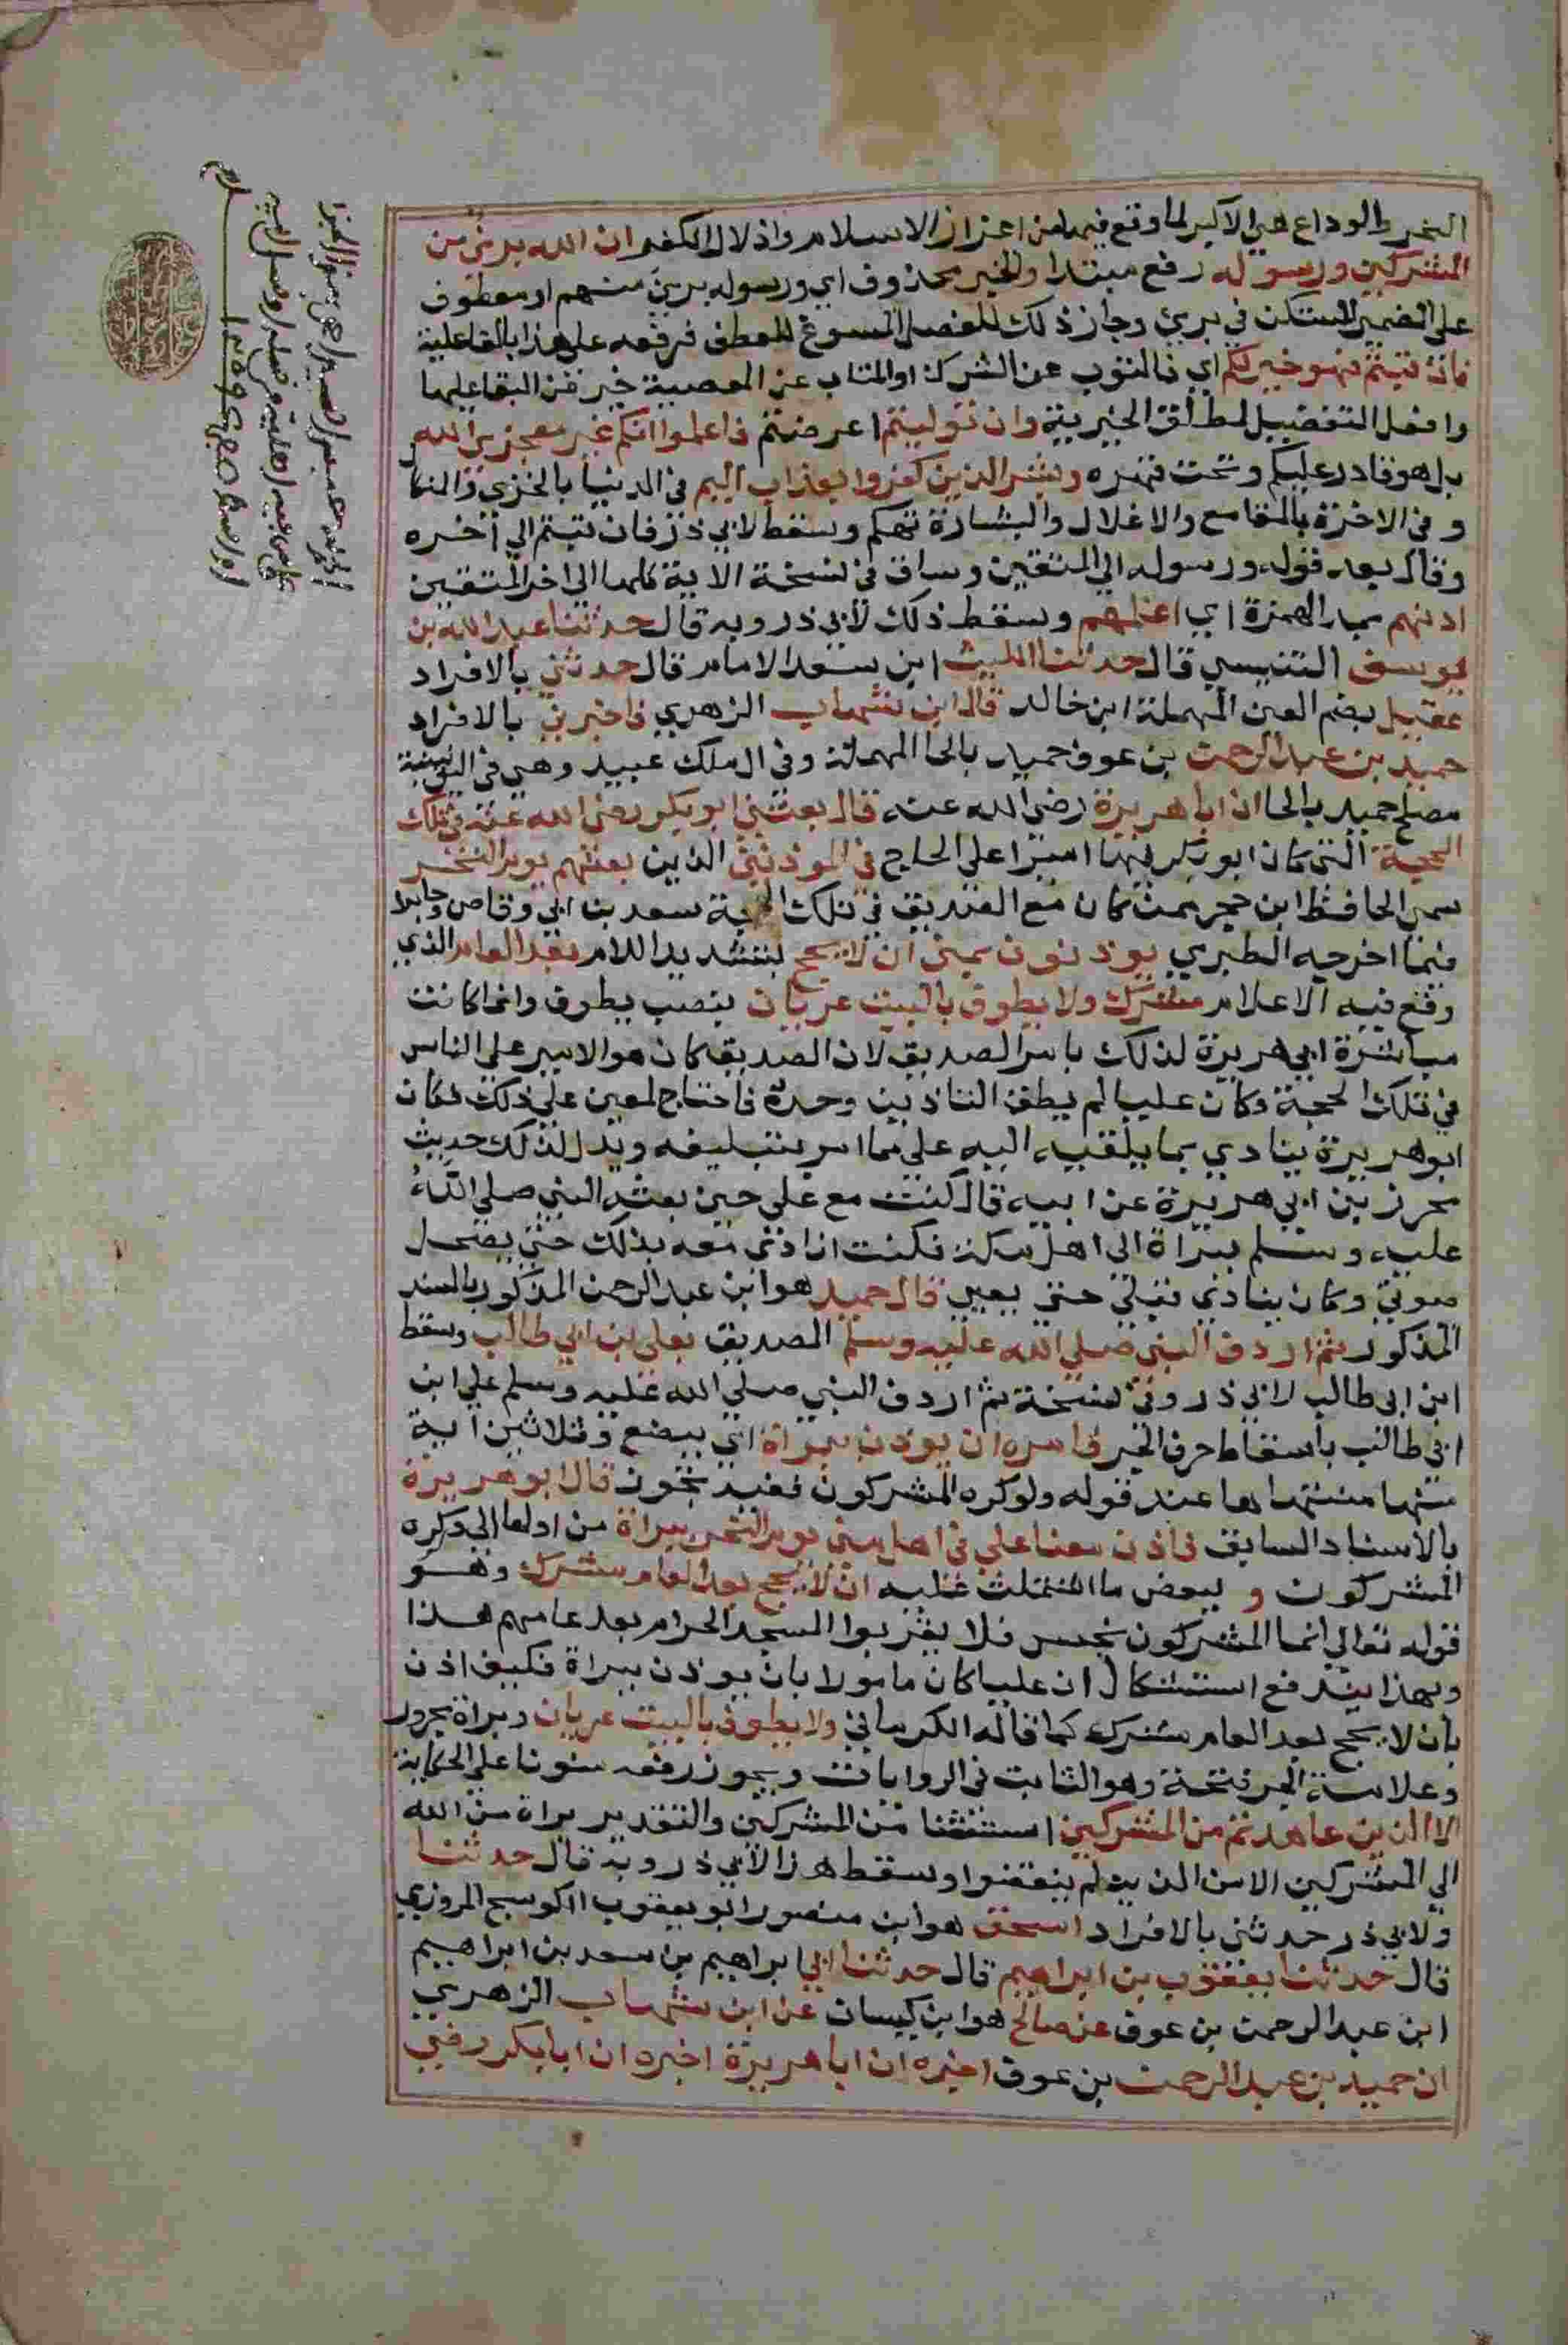 النحر والوداع هي الاكبر لما وقع فيها من اعزاز الاسلام واذلال الكفر ان الله بريء من
المشركين ورسوله رفع مبتدا والخبر محذوف اي ورسوله بريء منهم او معطوف
على الضمير المستكن في بريء وجاز ذلك للفصل المسوغ للعطف فرفعه على هذا بالفاعلية
فان تبتم فهو خير لكم اي فالتوب عن الشرك او المتاب عن المعصية خير من البقا عليها
وافعل التفضيل لمطلق الخيرية وان توليتم اعرضتم فاعلموا انكم غير معجزي الله
بل هو قادر عليكم وتحت قهره وبشر الذين كفروا بعذاب اليم في الدنيا بالخزي والنكا
وفي الاخرة بالمقامع والاغلال والبشارة تهكم وسقط لابي ذر فان تبتم الى آخره
وقال بعد قوله ورسوله الى المتقين وساق في نسخة الاية كلها الى اخر المتقين
اذنهم بمد الهمزة اي اعلمهم وسقط ذلك لابي ذر وبه قال حدثنا عبد الله بن
يوسف التنيسي قال حدثنا الليث ابن سعد الامام قال حدثني بالافراد
عقيل بضم العين المهملة ابن خالد قال ابن شهاب الزهري فاخبرني بالافراد
حميد بن عبد الرحمن بن عوف حميد بالحا المهملة وفي ال ملك عبيد وهي في اليونينية
مصلح حميد بالحا ان ابا هريرة رضي الله عنه قال بعثني ابو بكر رضي الله عنه في تلك
الحجة التي كان ابو بكر فيها اميرا على الحاج في الموذنين الذين بعثهم يوم النحر
سمى الحافظ ابن حجر ممن كان مع الصديق في تلك الحجة سعد بن ابي وقاص وجابرا
فيما اخرجه الطبري يوذنون بمنى ان لا يحج بتشديد اللام بعد العام الذي
وقع فيه الاعلام مشرك ولا يطوف بالبيت عريان بنصب يطوف وانما كانت
مباشرة ابي هريرة لذلك بامر الصديق لان الصديق كان هو الامير على الناس
في تلك الحجة وكان عليا لم يطق التاذين وحده فاحتاج لمعين على ذلك فكان
ابو هريرة ينادي بما يلقيه اليه علي مما امر بتبليغه ويدل لذلك حديث
محرز بن ابي هريرة عن ابيه قال كنت مع علي حين بعثه النبي صلى الله
عليه وسلم ببراة الى اهل مكة فكنت انادي معه بذلك حتى يصحل
صوتي وكان ينادي قبلي حتى يعيي قال حميد هو ابن عبد الرحمن المذكور بالسند
المذكور ثم اردف النبي صلى الله عليه وسلم الصديق بعلي بن ابي طالب وسقط
ابن ابي طالب لابي ذر وفي نسخة ثم اردف النبي صلى الله عليه وسلم علي ابن
ابي طالب باسقاط حرف الجر فامره ان يوذن ببراة اي ببضع وثلاثين آية
منها منتهاها عند قوله ولو كره المشركون ففيه تجوز قال ابو هريرة
بالاسناد السابق فاذن معنا علي في اهل منى يوم النحر ببراة من اولها الى ذكره
المشركون و ببعض ما اشتملت عليه ان لا يحج بعد العام مشرك وهو
قوله تعالى انما المشركون نجس فلا يقربوا المسجد الحرام بعد عامهم هذا
وبهذا يندفع استشكال ان عليا كان مامورا بان يوذن ببراة فكيف اذن
بان لا يحج بعد العام مشرك كما قاله الكرماني ولا يطوف بالبيت عريان وبراة مجرور
وعلامة الجر فتحة وهو الثابت في الروايات ويجوز رفعه منونا على الحكاية
الا الذين عاهدتم من المشركين استثنا من المشركين والتقدير براة من الله
الى المشركين الا من الذين لم ينقضوا وسقط هذا لابي ذر وبه قال حدثنا
ولابي ذر حدثني بالافراد اسحق هو ابن منصور ابو يعقوب الكوسج المروزي
قال حدثنا يعقوب بن ابراهيم قال حدثنا ابي ابراهيم بن سعد بن ابراهيم
ابن عبد الرحمن بن عوف عن صالح هو ابن كيسان عن ابن شهاب الزهري
ان حميد بن عبد الرحمن بن عوف اخبره ان ابا هريرة اخبره ان ابا بكر رضي